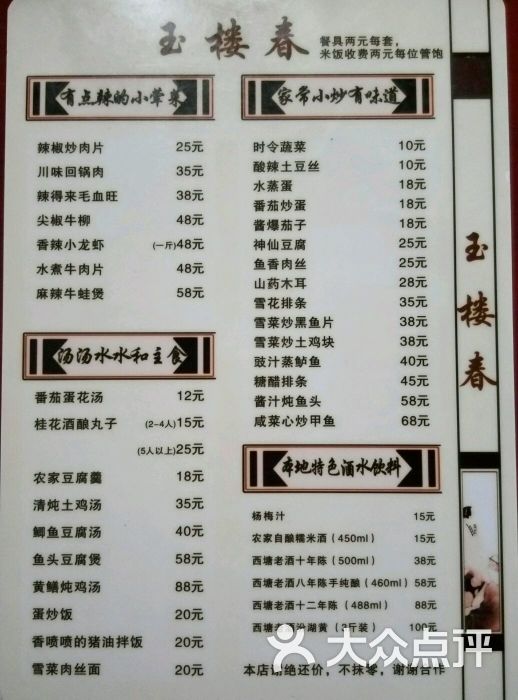 玉楼春
餐具两元每套,
米饭收费两元每位管饱
有点辣的小荤菜
辣椒炒肉片 25元
川味回锅肉 35元
辣得来毛血旺 38元
尖椒牛柳 48元
香辣小龙虾 (一斤)48元
水煮牛肉片 48元
麻辣牛蛙煲 58元
汤汤水水和主食
番茄蛋花汤 12元
桂花酒酿丸子 (2-4人)15元
(5人以上)25元
农家豆腐羹 18元
清炖土鸡汤 35元
鲫鱼豆腐汤 40元
鱼头豆腐煲 58元
黄鳝炖鸡汤 88元
蛋炒饭 20元
香喷喷的猪油拌饭 20元
雪菜肉丝面 20元
家常小炒有味道
时令蔬菜 10元
酸辣土豆丝 10元
水蒸蛋 18元
番茄炒蛋 18元
酱爆茄子 18元
神仙豆腐 25元
鱼香肉丝 25元
山药木耳 28元
雪花排条 35元
雪菜炒黑鱼片 38元
雪菜炒土鸡块 38元
豉汁蒸鲈鱼 40元
糖醋排条 45元
酱汁炖鱼头 58元
咸菜心炒甲鱼 68元
本地特色酒水饮料
杨梅汁 15元
农家自酿糯米酒(450ml) 15元
西塘老酒十年陈(500ml) 38元
西塘老酒八年陈手纯酿(460ml) 58元
西塘老酒十二年陈(488ml) 88元
西塘老酒汾湖黄(3斤装) 100元
本店谢绝还价,不抹零,谢谢合作
玉楼春
大众点评